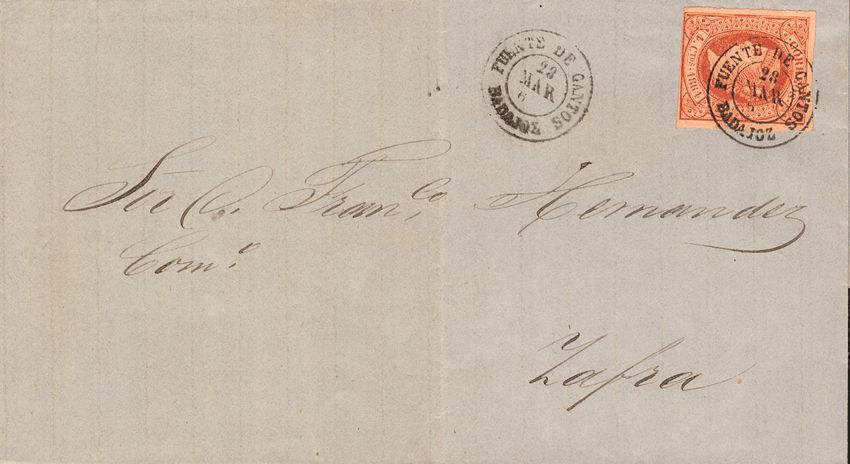 FUENTE DE CANTOS
28
MAR
6
BADAJOZ
FUENTE DE CANTOS
28
MAR
6
BADAJOZ
Sr D. Fran.co Hernandez
Com.o
Zafra